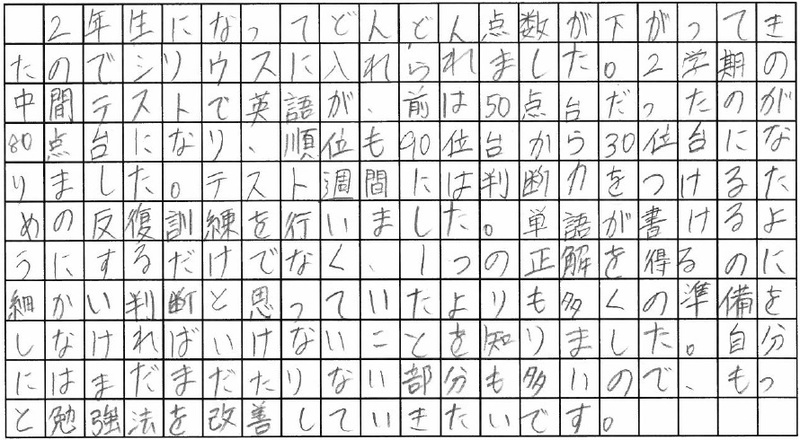 2年生になってどんどん点数が下がってき
たのでシリウスに入れられました。2学期の
中間テストで英語が、前は50点台だったのが
80点台になり、順位も90位台から30位台にな
りました。テスト週間には判断力をつけるた
めの反復訓練を行いました。単語が書けるよ
うにするだけでなく、1つの正解を得るのに
細かい判断と思っていたよりも多くの準備を
しなければいけないことを知りました。自分
にはまだまだたりない部分も多いので、もっ
と勉強法を改善していきたいです。